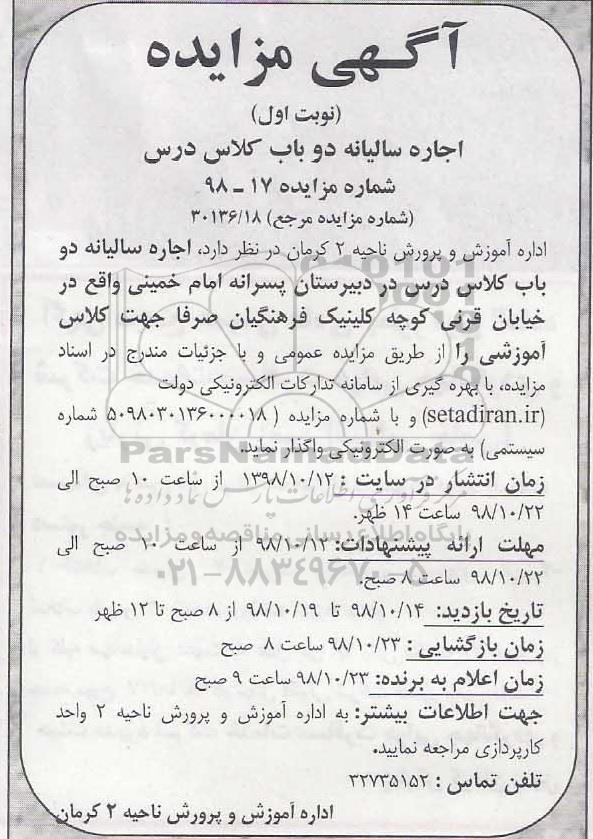 آگهی مزایده
(نوبت اول)
اجاره سالیانه دو باب کلاس درس
شماره مزایده ۱۷ ـ ۹۸
(شماره مزایده مرجع) ۳۰۱۳۶/۱۸
اداره آموزش و پرورش ناحیه ۲ کرمان در نظر دارد، اجاره سالیانه دو
باب کلاس درس در دبیرستان پسرانه امام خمینی واقع در
خیابان قرنی کوچه کلینیک فرهنگیان صرفا جهت کلاس
آموزشی را از طریق مزایده عمومی و با جزئیات مندرج در اسناد
مزایده، با بهره گیری از سامانه تدارکات الکترونیکی دولت
(setadiran.ir) و با شماره مزایده ( ۵۰۹۸۰۳۰۱۳۶۰۰۰۰۱۸ شماره
سیستمی) به صورت الکترونیکی واگذار نماید.
ParsNamadData
زمان انتشار در سایت : ۱۳۹۸/۱۰/۱۲ از ساعت ۱۰ صبح الی
۹۸/۱۰/۲۲ ساعت ۱۴ ظهر.
مهلت ارائه پیشنهادات: ۹۸/۱۰/۱۲ از ساعت ۱۰ صبح الی
۹۸/۱۰/۲۲ ساعت ۸ صبح.
۰۲۱-۸۸۳۴۹۶۷۰-۵
تاریخ بازدید: ۹۸/۱۰/۱۴ تا ۹۸/۱۰/۱۹ از ۸ صبح تا ۱۲ ظهر
زمان بازگشایی : ۹۸/۱۰/۲۳ ساعت ۸ صبح
زمان اعلام به برنده: ۹۸/۱۰/۲۳ ساعت ۹ صبح
جهت اطلاعات بیشتر: به اداره آموزش و پرورش ناحیه ۲ واحد
کارپردازی مراجعه نمایید.
تلفن تماس : ۳۲۷۳۵۱۵۲
اداره آموزش و پرورش ناحیه ۲ کرمان